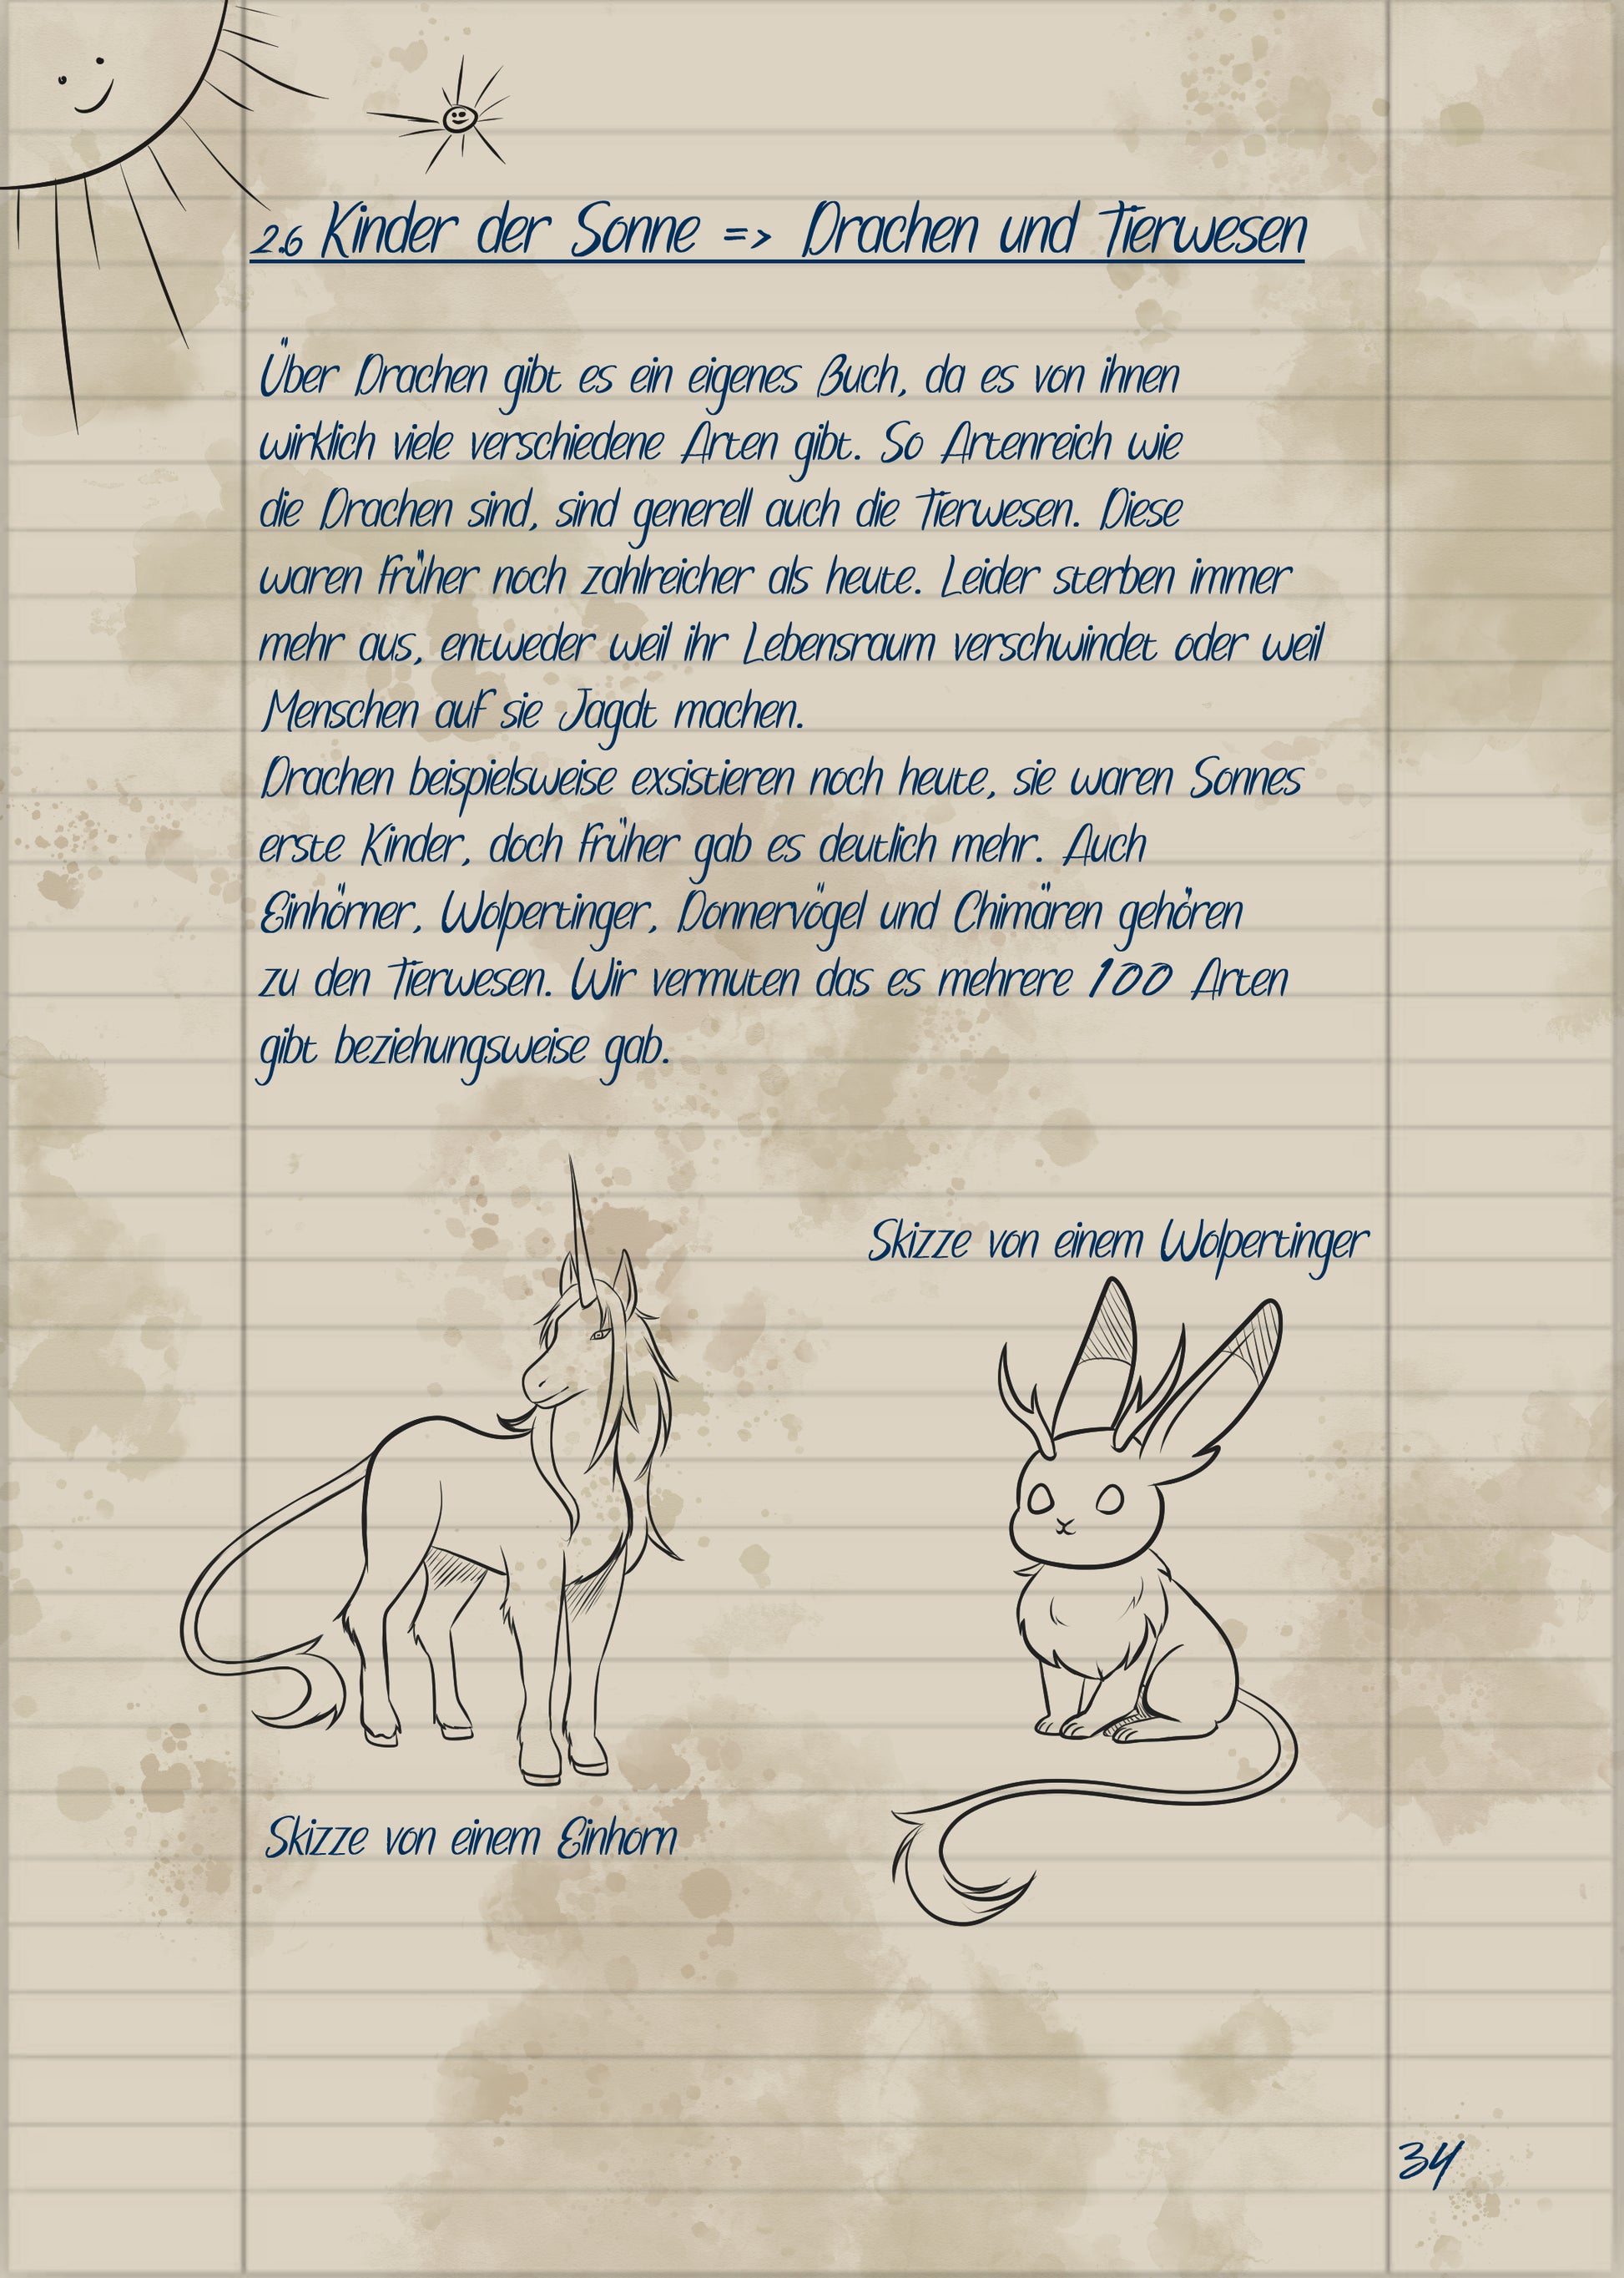 2.6 Kinder der Sonne => Drachen und Tierwesen
Über Drachen gibt es ein eigenes Buch, da es von ihnen
wirklich viele verschiedene Arten gibt. So Artenreich wie
die Drachen sind, sind generell auch die Tierwesen. Diese
waren früher noch zahlreicher als heute. Leider sterben immer
mehr aus, entweder weil ihr Lebensraum verschwindet oder weil
Menschen auf sie Jagdt machen.
Drachen beispielsweise exsistieren noch heute, sie waren Sonnes
erste Kinder, doch früher gab es deutlich mehr. Auch
Einhörner, Wolpertinger, Donnervögel und Chimären gehören
zu den Tierwesen. Wir vermuten das es mehrere 100 Arten
gibt beziehungsweise gab.
Skizze von einem Wolpertinger
Skizze von einem Einhorn
34